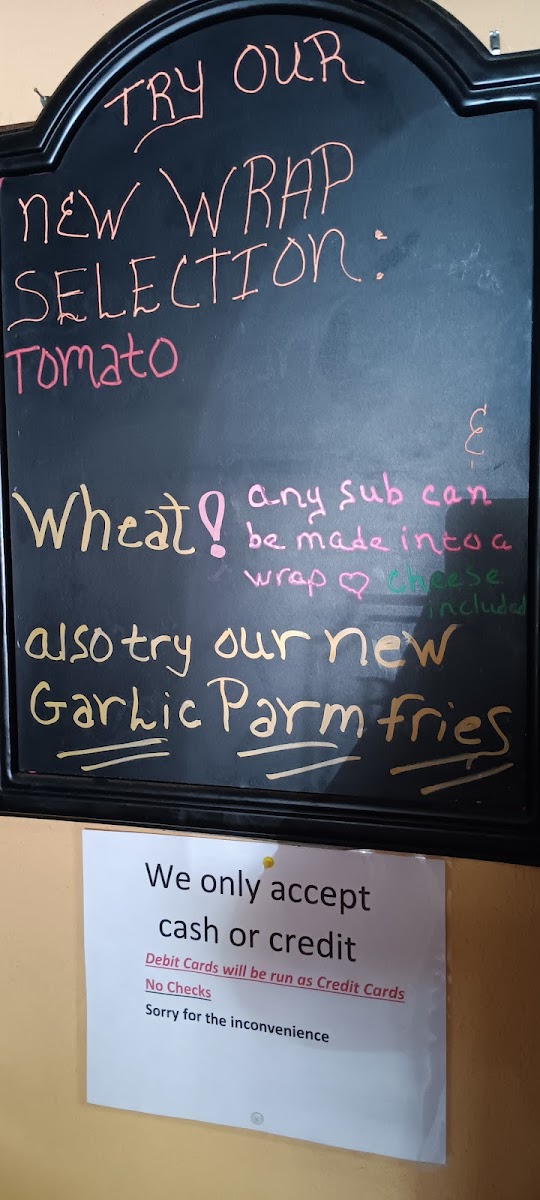 TRY OUR
NEW WRAP
SELECTION:
Tomato
&
Wheat!
any sub can
be made into a
wrap ♡ cheese
included
also try our new
Garlic Parm fries
We only accept
cash or credit
Debit Cards will be run as Credit Cards
No Checks
Sorry for the inconvenience